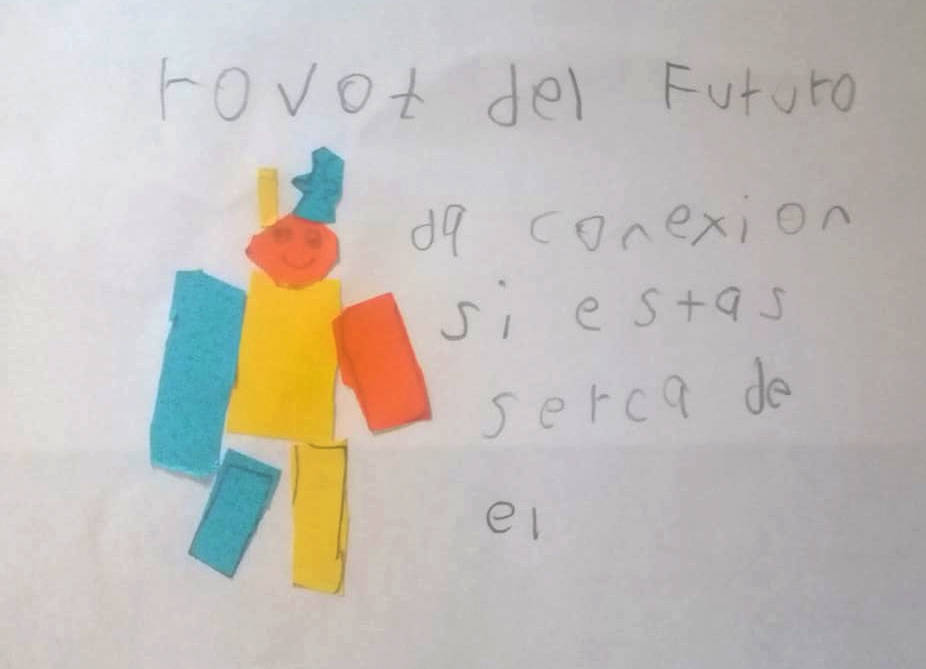 rovot del Futuro
da conexion
si estas
serca de
el